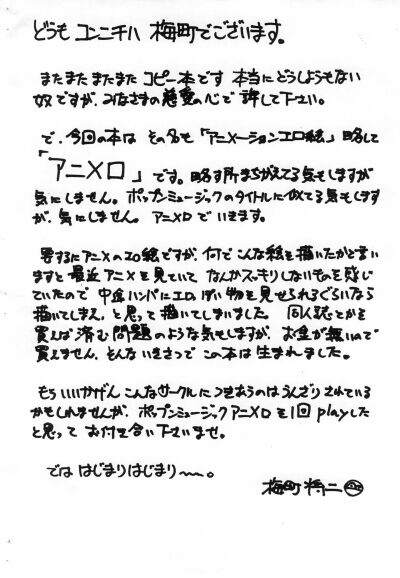 どうも コンニチハ 梅町でございます。
またまたまたまた コピー本です 本当にどうしようもない
奴ですが、みなさまの慈愛の心で 許して下さい。
で、今回の本は その名も「アニメーションエロ絵」略して
「アニメロ」です。略す所まちがえてる気もしますが
気にしません。ポップンミュージックのタイトルに似てる気もします
が、気にしません。アニメロでいきます。
要するにアニメのエロ絵ですが、何でこんな絵を描いたかと言い
ますと最近アニメを見ていて なんかスッキリしないものを感じ
ていたので 中途ハンパにエロっぽい物を見せられるぐらいなら
描いてしまえ、と思って描いてしまいました。同人誌とかを
買えば済む問題のような気もしますが、お金が無いので
買えません、そんないきさつで この本は生まれました。
もういいかげん こんなサークルにつきあうのはうんざりされている
かもしれませんが、ポップンミュージックアニメロを1回playした
と思って お付き合い下さいませ。
では はじまりはじまり〜。
梅町 将二